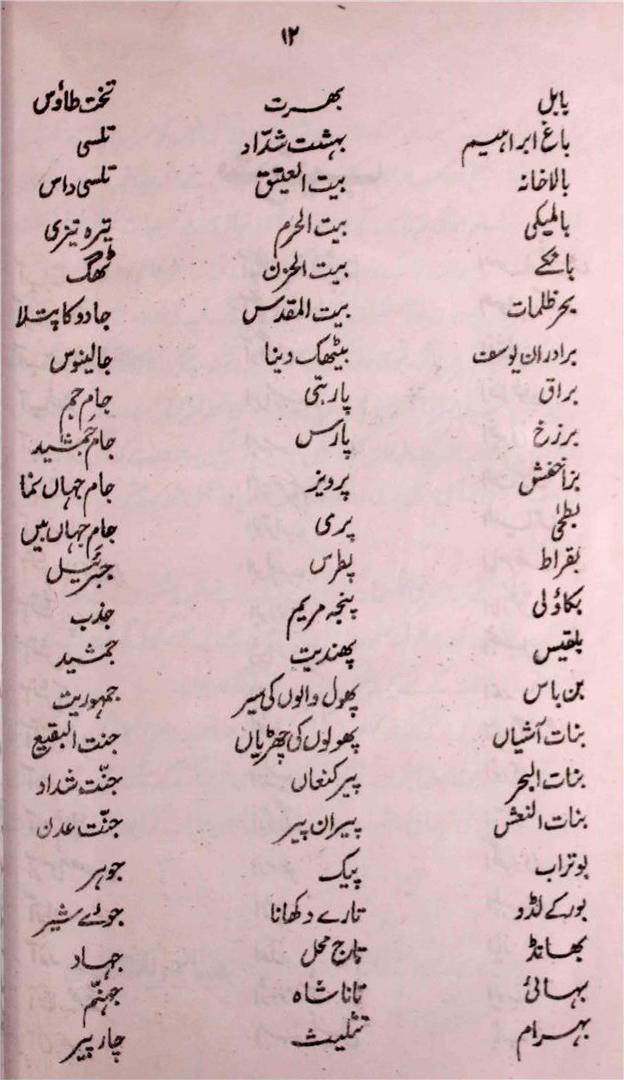 ۱۲
بابل
باغ ابراہیم
بالاخانہ
بالمیکی
بانکے
بحر ظلمات
برادران یوسف
براق
برزخ
بزاخفش
بطحیٰ
بقراط
بکاؤلی
بلقیس
بن باس
بنات آشیاں
بنات البحر
بنات النعش
بوتراب
بور کے لڈو
بھانڈ
بہائی
بہرام
بھرت
بہشت شدّاد
بیت العتیق
بیت الحرم
بیت الحزن
بیت المقدس
بیٹھک دینا
پاربتی
پارس
پرویز
پری
پطرس
پنجہ مریم
پھول والوں کی سیر
پھولوں کی چھڑیاں
پیر کنعاں
پیران پیر
پیک
تارے دکھانا
تاج محل
تانا شاہ
تثلیث
تخت طاؤس
تلسی
تلسی داس
تیرہ تیزی
ٹھگ
جادو کا پتلا
جالینوس
جام جم
جام جمشید
جام جہاں نما
جام جہاں بیں
جبرئیل
جذب
جمشید
جمہوریت
جنت البقیع
جنّت شداد
جنّت عدن
جوہر
جوئے شیر
جہاد
جہنّم
چار پیر